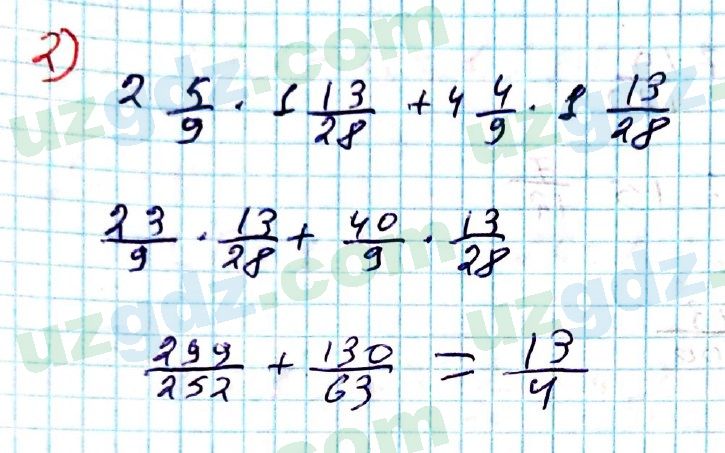 2)
2 5/9 · 1 13/28 + 4 4/9 · 1 13/28
23/9 · 13/28 + 40/9 · 13/28
299/252 + 130/63 = 13/4
uzgdz.com
uzgdz.com
uzgdz.com
uzgdz.com
uzgdz.com